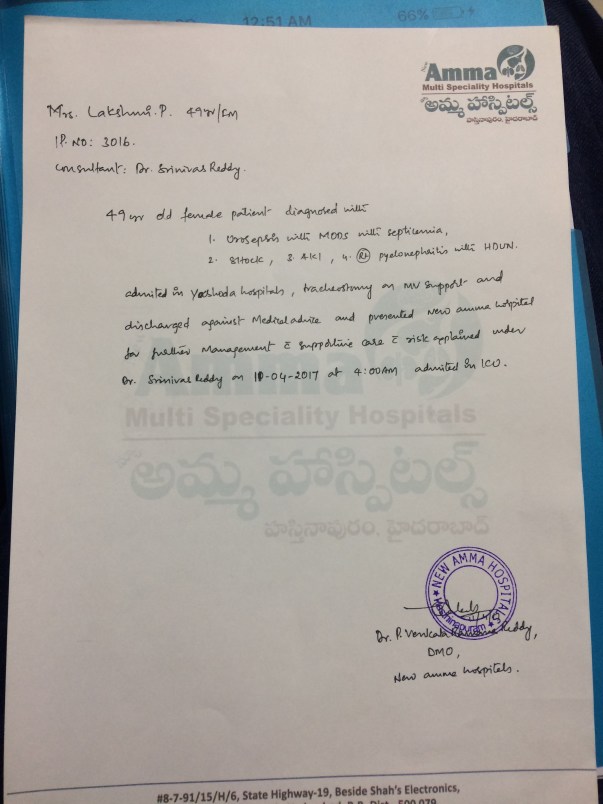 12:51 AM
66%
New
Amma
Multi Speciality Hospitals
న్యూ అమ్మ హాస్పిటల్స్
హస్తినాపురం, హైదరాబాద్
Mrs. Lakshmi. P. 49yr/FM
IP. NO: 3016.
Consultant: Dr. Srinivas Reddy.
49 yr old female patient diagnosed with
1. Urosepsis with MODS with septicemia,
2. SHOCK, 3. AKI, 4. Rt pyelonephritis with HDUN.
admited in Yashoda hospitals, tracheostomy on MV support and
discharged against Medical advice and presented New amma hospital
for further Management c supportive care c risk explained under
Dr. Srinivas Reddy on 10-04-2017 at 4:00AM admitted in ICU.
Amma
Multi Speciality Hospitals
న్యూ అమ్మ హాస్పిటల్స్
హస్తినాపురం, హైదరాబాద్
NEW AMMA HOSPITALS
Hasthinapuram
Dr. P. Venkata Reddy,
DMO,
New amma hospitals.
#8-7-91/15/H/6, State Highway-19, Beside Shah's Electronics,
R.R. Dist - 500 079